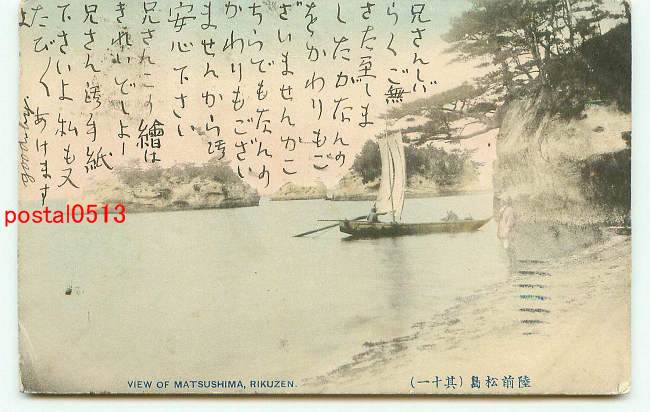 兄さんしば
らくご無
さた致しま
したかなんの
をかわりもご
ざいませんかこ
ちらでもなんの
かわりもござい
ませんから御
安心下さい
兄さんこの繪は
きれいでしよー
兄さん御手紙
下さいよ私も又
たびくあけます
よ
postal0513
VIEW OF MATSUSHIMA, RIKUZEN.
陸前松島(其十一)